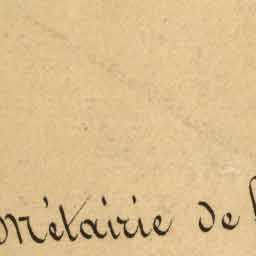 Métairie de